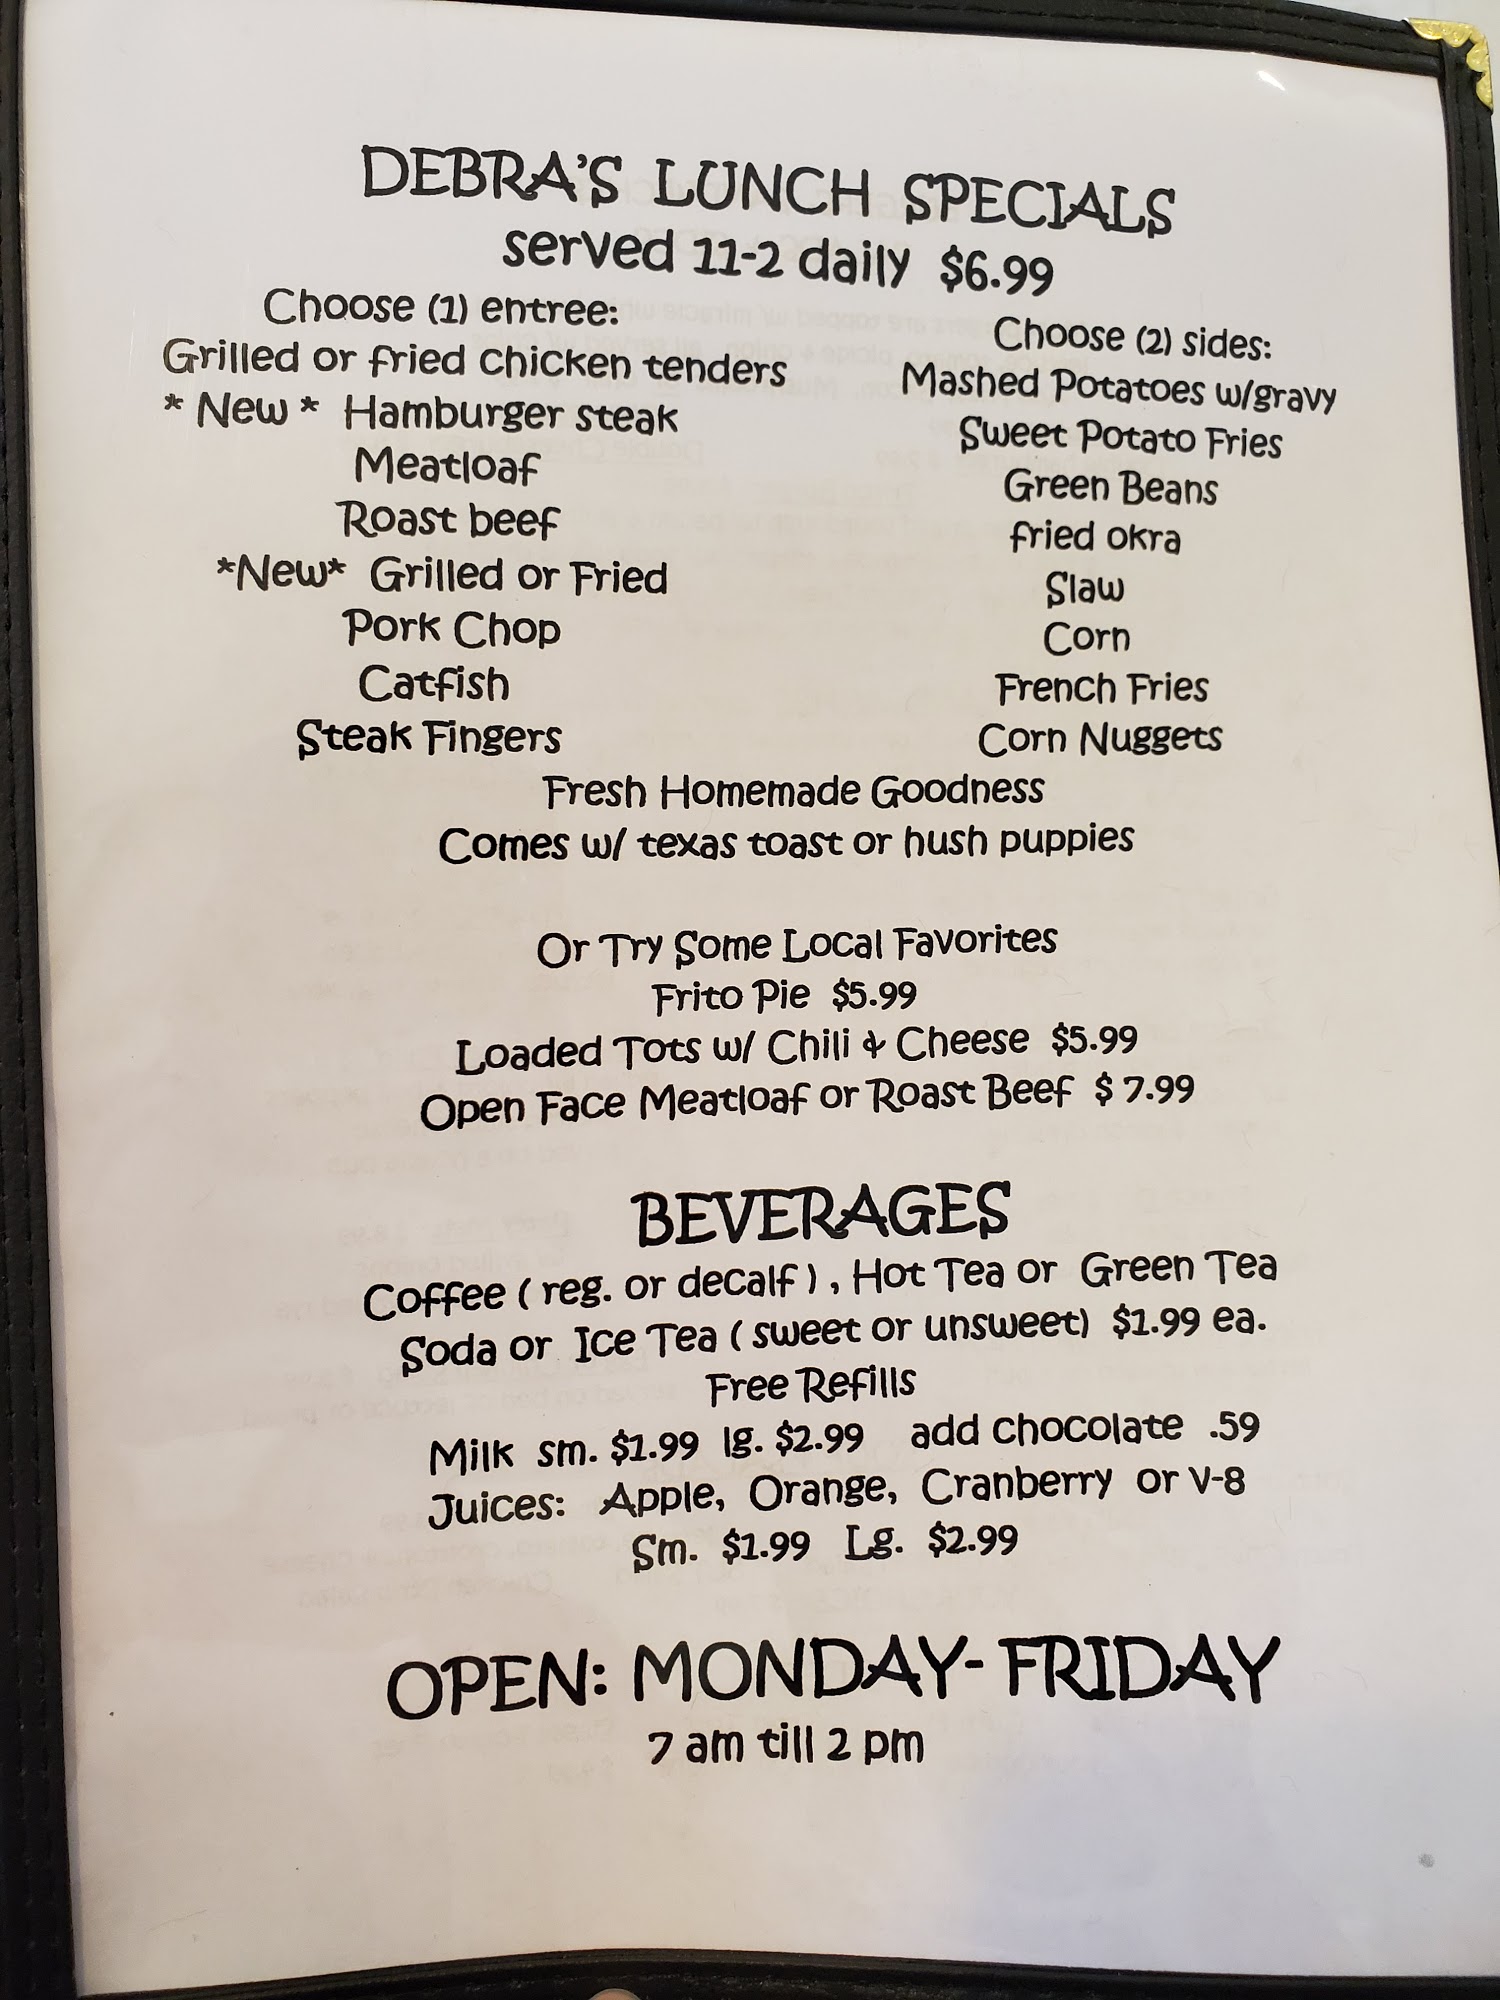 DEBRA'S LUNCH SPECIALS
served 11-2 daily $6.99
Choose (1) entree:
Grilled or fried chicken tenders
* New * Hamburger steak
Meatloaf
Roast beef
*New* Grilled or Fried
Pork Chop
Catfish
Steak Fingers
Choose (2) sides:
Mashed Potatoes w/gravy
Sweet Potato Fries
Green Beans
fried okra
Slaw
Corn
French Fries
Corn Nuggets
Fresh Homemade Goodness
Comes w/ texas toast or hush puppies
Or Try Some Local Favorites
Frito Pie $5.99
Loaded Tots w/ Chili & Cheese $5.99
Open Face Meatloaf or Roast Beef $ 7.99
BEVERAGES
Coffee ( reg. or decalf ) , Hot Tea or Green Tea
Soda or Ice Tea ( sweet or unsweet) $1.99 ea.
Free Refills
Milk sm. $1.99 lg. $2.99 add chocolate .59
Juices: Apple, Orange, Cranberry or V-8
Sm. $1.99 Lg. $2.99
OPEN: MONDAY- FRIDAY
7 am till 2 pm